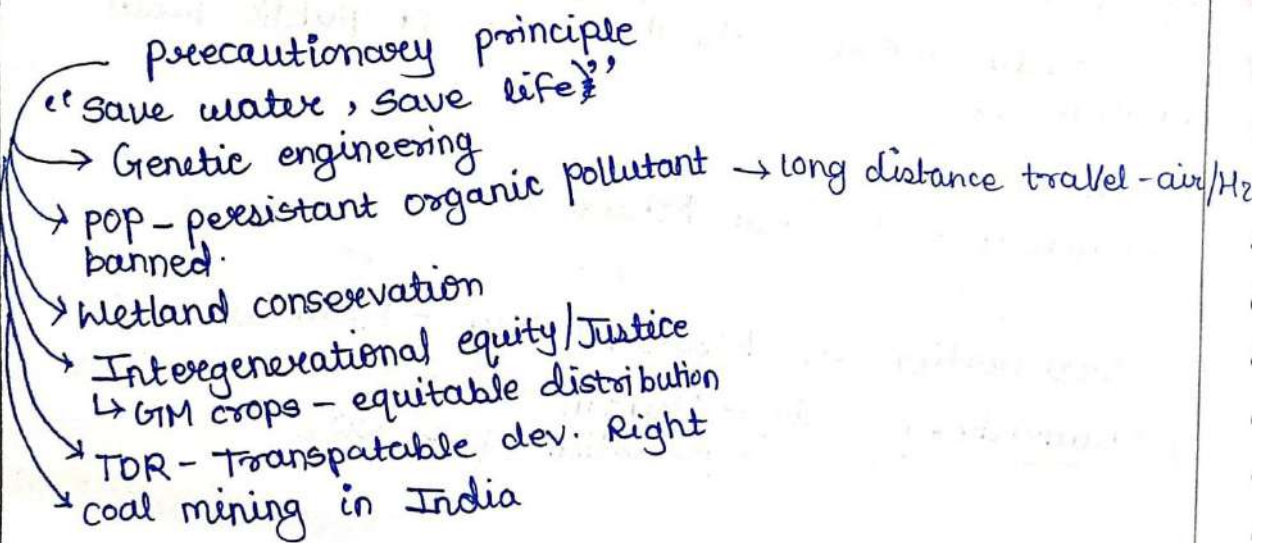 precautionary principle
"save water, save life"
→ Genetic engineering
→ POP - persistant organic pollutant → long distance travel - air/H2
banned.
→ Wetland conservation
→ Intergenerational equity/Justice
↳ GM crops - equitable distribution
→ TDR - Transpatable dev. Right
→ coal mining in India